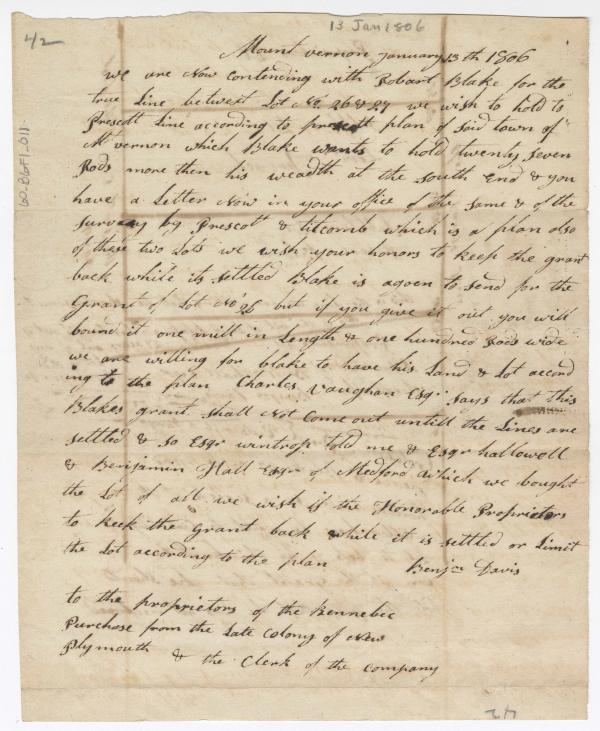 13 Jan 1806
42
60.B6F1_011
Mount vernon January 13th 1806
we are Now contending with Robart Blake for the
true Line betwext Lot No. 26 & 27 we wish to hold to
Prescott Line according to prescott plan of said town of
Mt vernon which Blake wants to hold twenty seven
Rods more then his weadth at the South End & you
have a Letter Now in your office of the same & of the
survey by Prescott & titcomb which is a plan also
of these two Lots we wish your honors to keep the grant
back while its settled Blake is agoen to send for the
Grant of Lot No 26 but if you give it out you will
bound it one mill in Length & one hundred Rods wide
we are willing for blake to have his Land & Lot accord
ing to the plan Charles Vaughan Esqr says that this
Blakes grant shall Not Come out untill the Lines are
settled & so Esqr wintrop told me & Esqr hallowell
& Benjamin Hall Esqr of Medford which we bought
the Lot of all we wish if the Honorable Proprietors
to keek the grant back while it is settled or Limit
the Lot according to the plan Benjn Davis
to the proprietors of the Kennebec
Purchase from the Late Colony of New
Plymouth & the Clerk of the Company
42